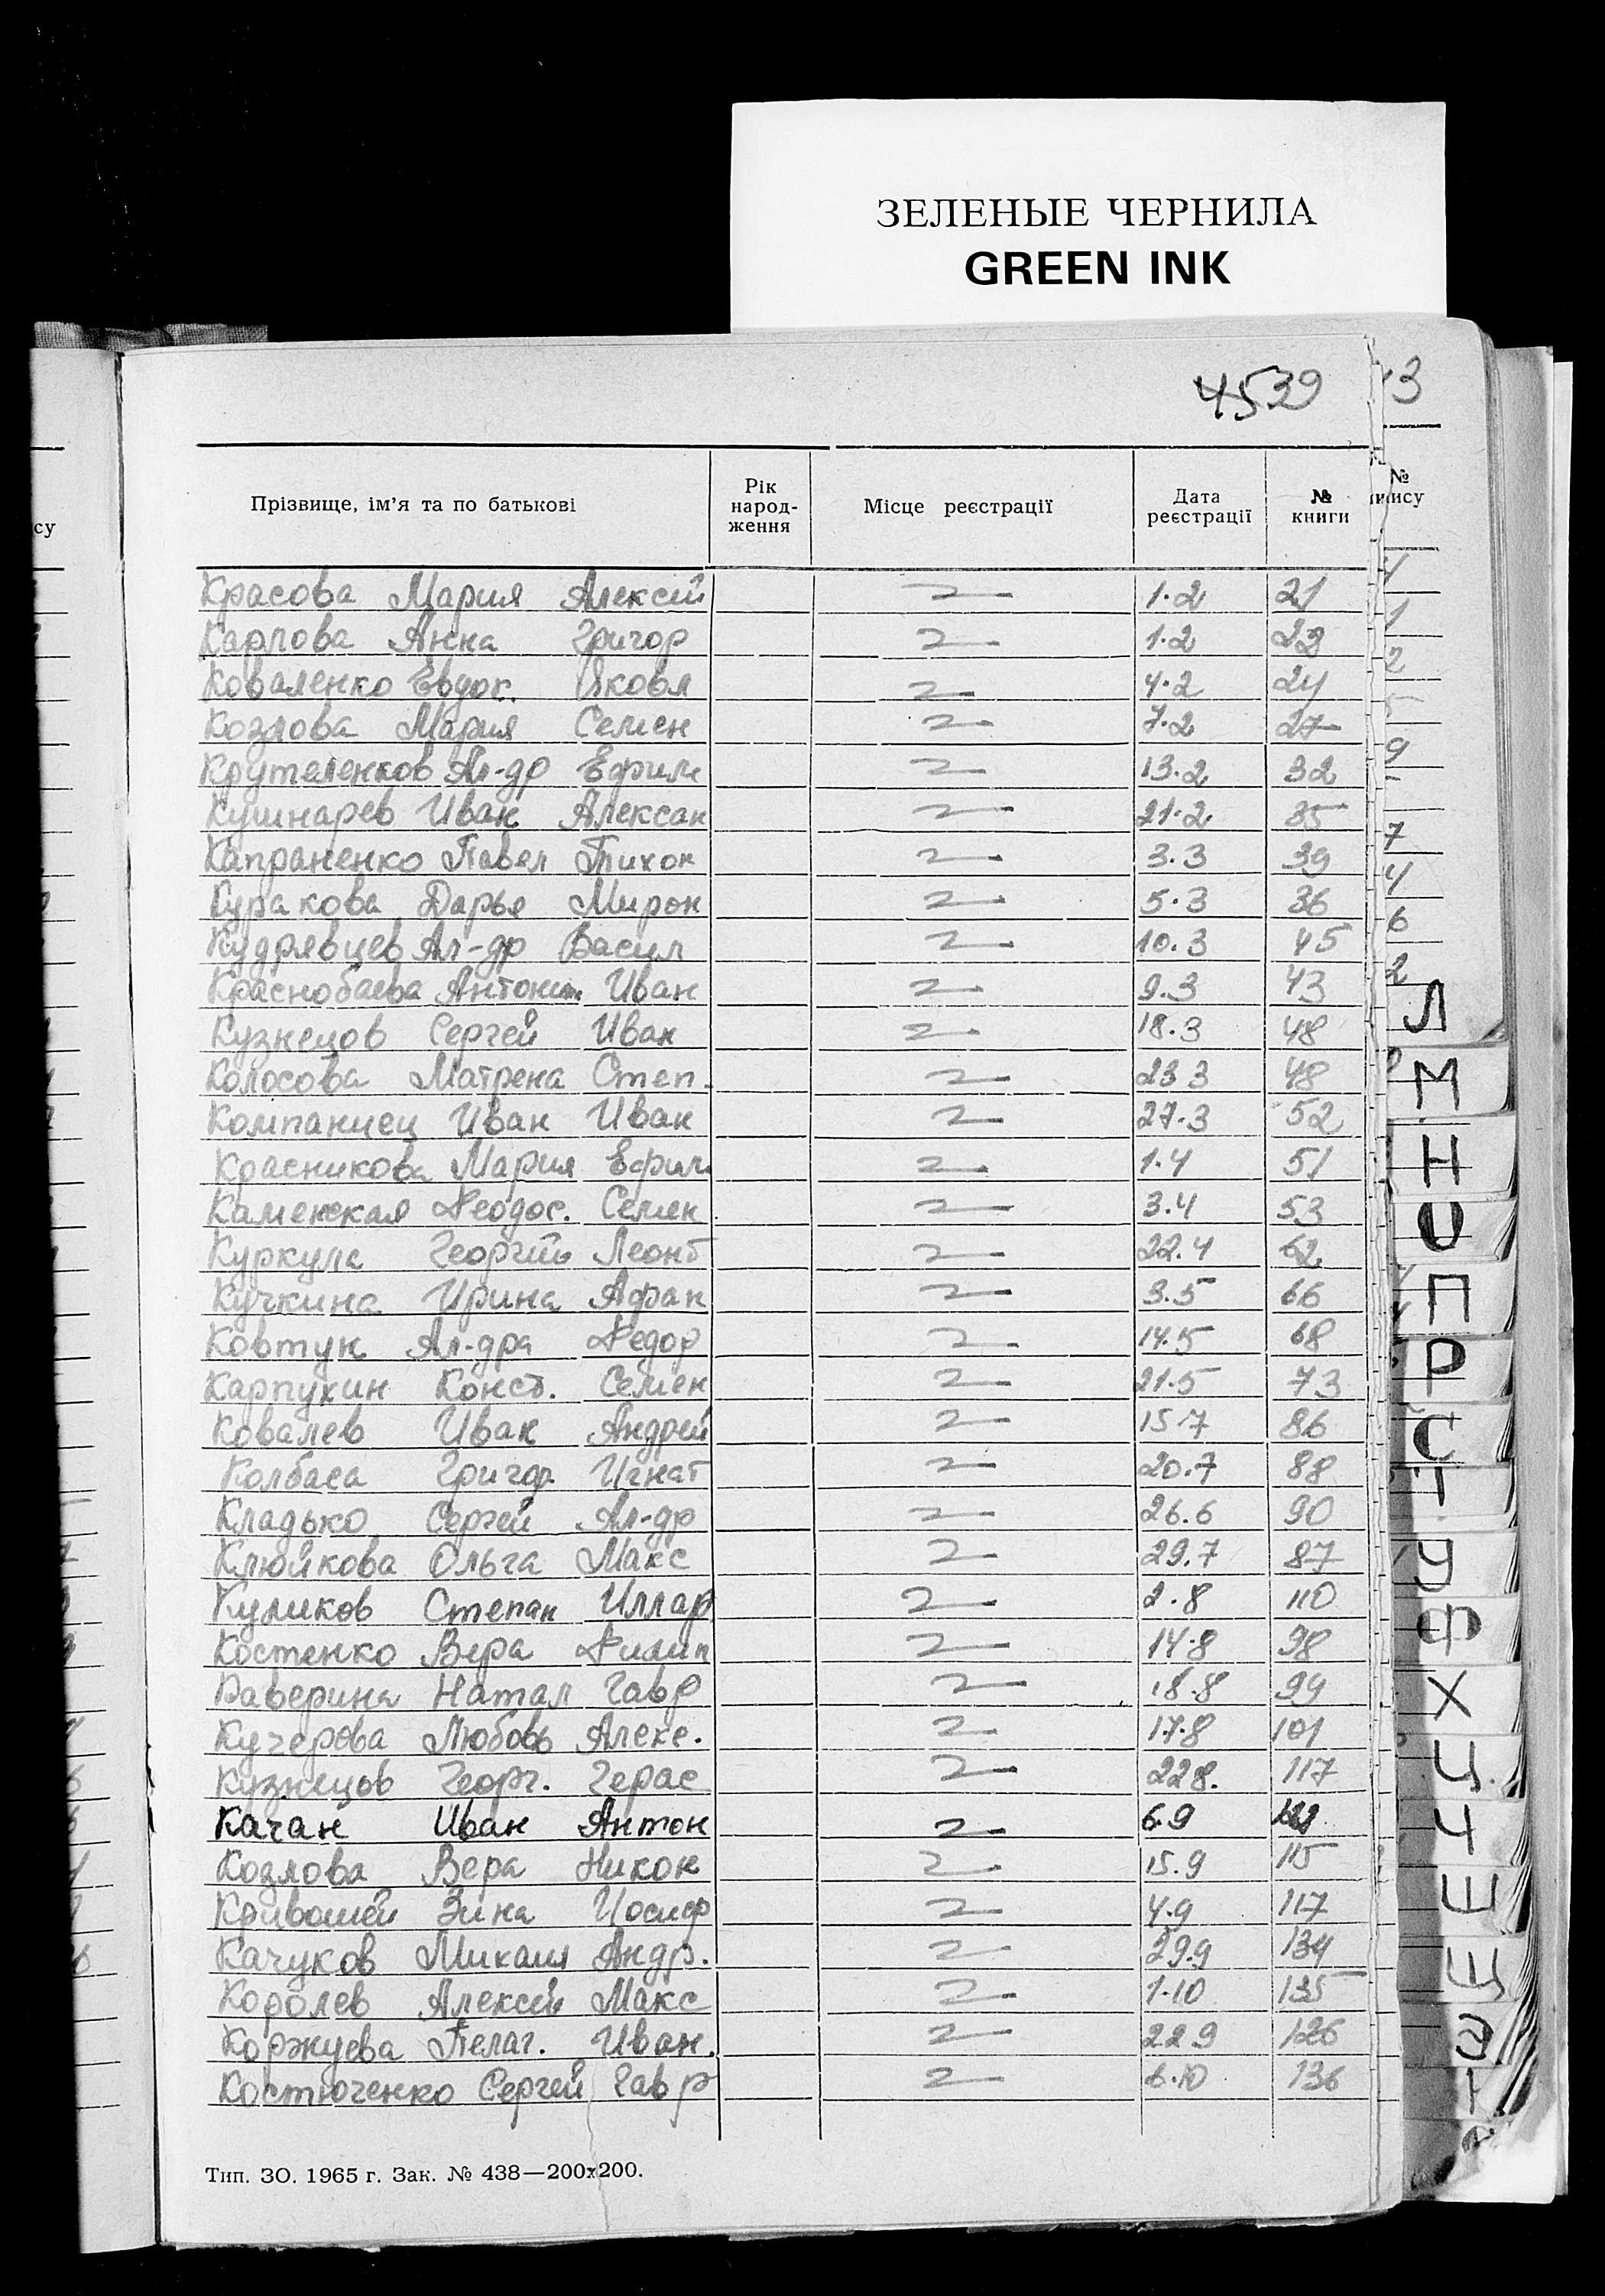 ЗЕЛЕНЫЕ ЧЕРНИЛА
GREEN INK
4539
Прізвище, ім'я та по батькові Рік народ-ження Місце реєстрації Дата реєстрації № книги
Красова Мария Алексій 1.2 21
Карлова Анна Григор 1.2 22
Коваленко Евдок. Яковл 4.2 24
Козлова Мария Семен 7.2 27
Крутеленков Ал-др Ефим 13.2 32
Кушнарев Иван Алексан 21.2 35
Капраненко Павел Тихон 3.3 39
Куракова Дарья Мирон 5.3 36
Кудрявцев Ал-др Васил 10.3 45
Краснобаева Антонин Иван 9.3 43
Кузнецов Сергей Иван 18.3 48
Колосова Матрена Степ. 23 3 48
Компаниец Иван Иван 27.3 52
Красникова Мария Ефим 1.4 51
Каменская Феодос. Семен 3.4 53
Куркула Георгій Леонт 22.4 62
Кучкина Ирина Афан 3.5 66
Ковтун Ал-дра Федор 14.5 68
Карпухин Конст. Семен 21.5 73
Ковалев Иван Андрей 15.7 86
Колбаса Григор Игнат 20.7 88
Кладько Сергей Ал-др 26.6 90
Клюйкова Ольга Макс 29.7 87
Куликов Степан Иллар 2.8 110
Костенко Вера Филип 14.8 98
Каверина Натал Гавр 18.8 99
Кучерова Любовь Алекс. 17.8 101
Кузнецов Георг. Герас 22 8. 117
Качан Иван Антон 6.9
Козлова Вера Никон 15.9 115
Кривошей Зина Иосиф 4.9 117
Качуков Михаил Андр. 29.9 134
Королев Алексей Макс 1.10 135
Коржуева Пелаг. Иван. 22 9 126
Костюченко Сергей Гавр 6.10 136
Тип. ЗО. 1965 г. Зак. № 438—200x200.
Л
М
Н
О
П
Р
С
Т
У
Ф
Х
Ц
Ч
Ш
Щ
Э